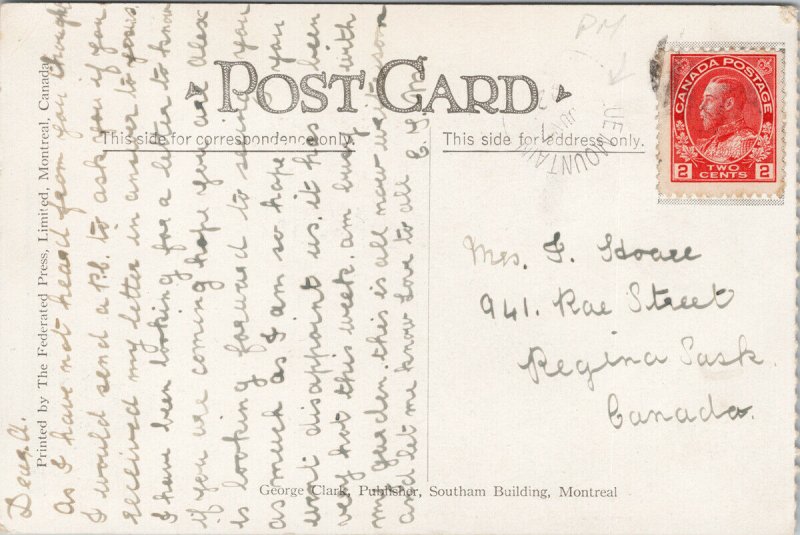 POST CARD
This side for correspondence only.
This side for address only.
Printed by The Federated Press, Limited, Montreal, Canada
George Clark, Publisher, Southam Building, Montreal
CANADA POSTAGE
2 TWO CENTS 2
PM
UE MOUNTAIN
JUN
Dear A.
as I have not heard from you thought
I would send a P.C. to ask you if you
received my letter in answer to yours.
I have been looking for a letter to know
if you are coming hope you are Alex
is looking forward to seeing you
as much as I am so hope you
wont disappoint us, it has been
very hot this week. am busy with
my garden. this is all now write soon
and let me know Love to all
Mrs. J. Hoare
941. Rae Street
Regina Sask.
Canada.